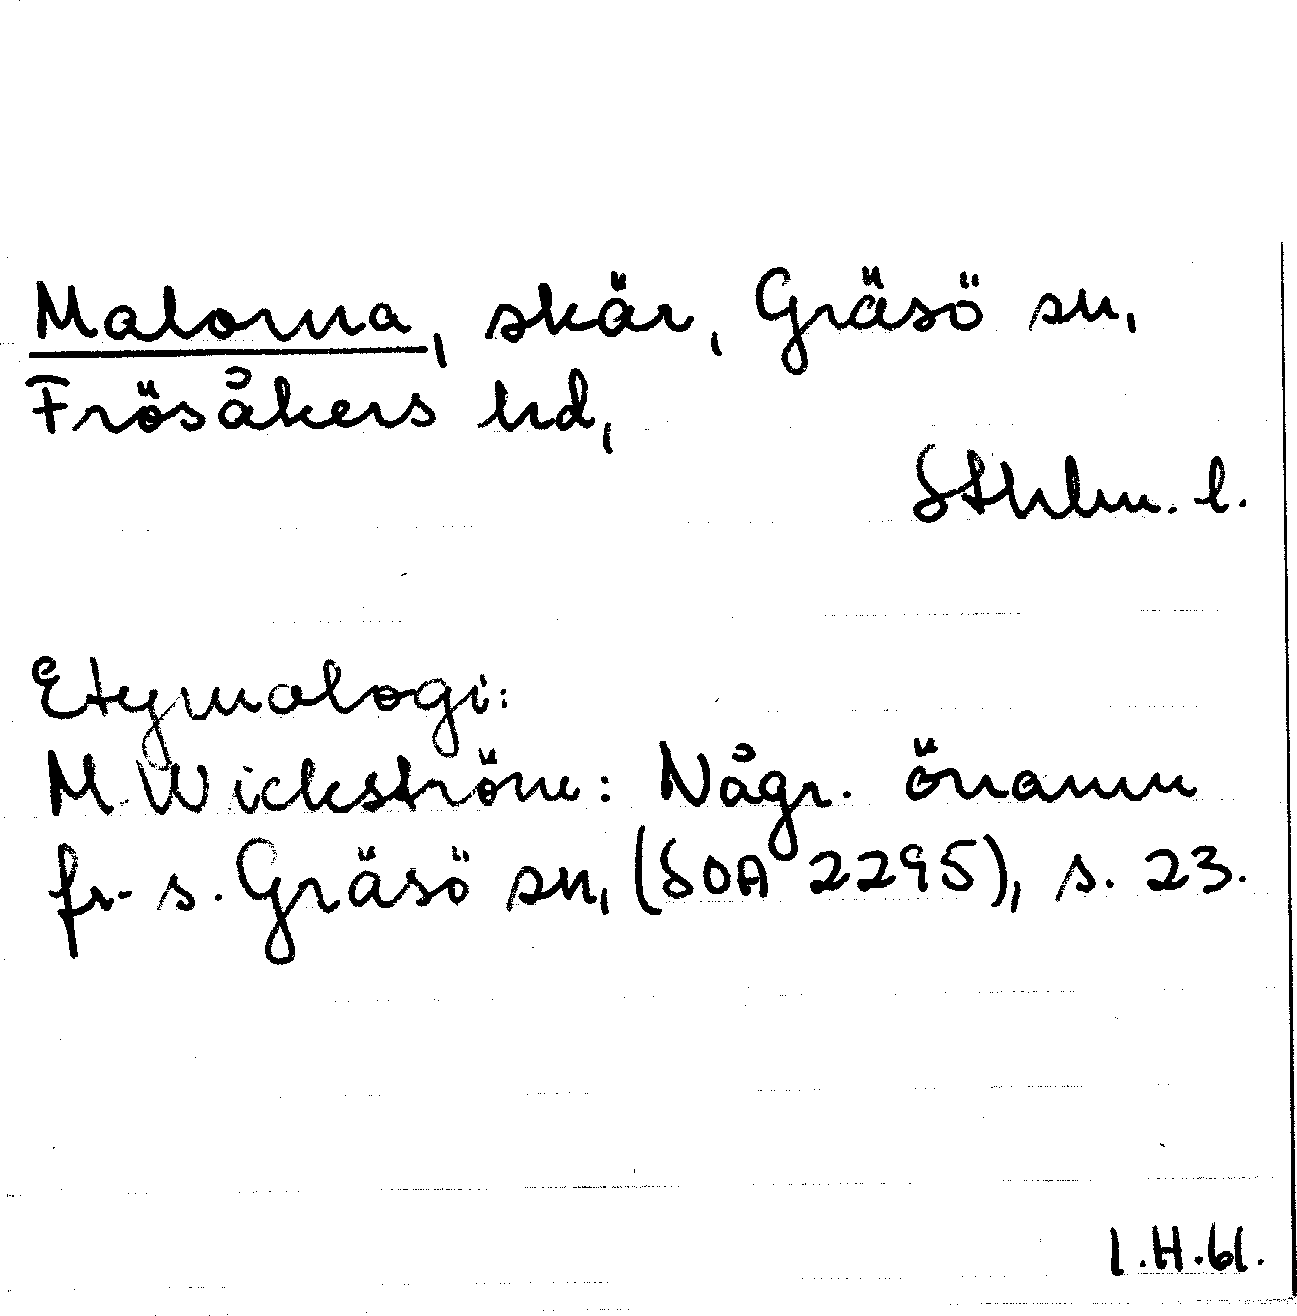 Malorna, skär, Gräsö sn,
Frösåkers hd,
Sthlm. l.
Etymologi:
M Wickström: Någr. önamn
fr. s. Gräsö sn, (SOA 2295), s. 23.
I.H.61.